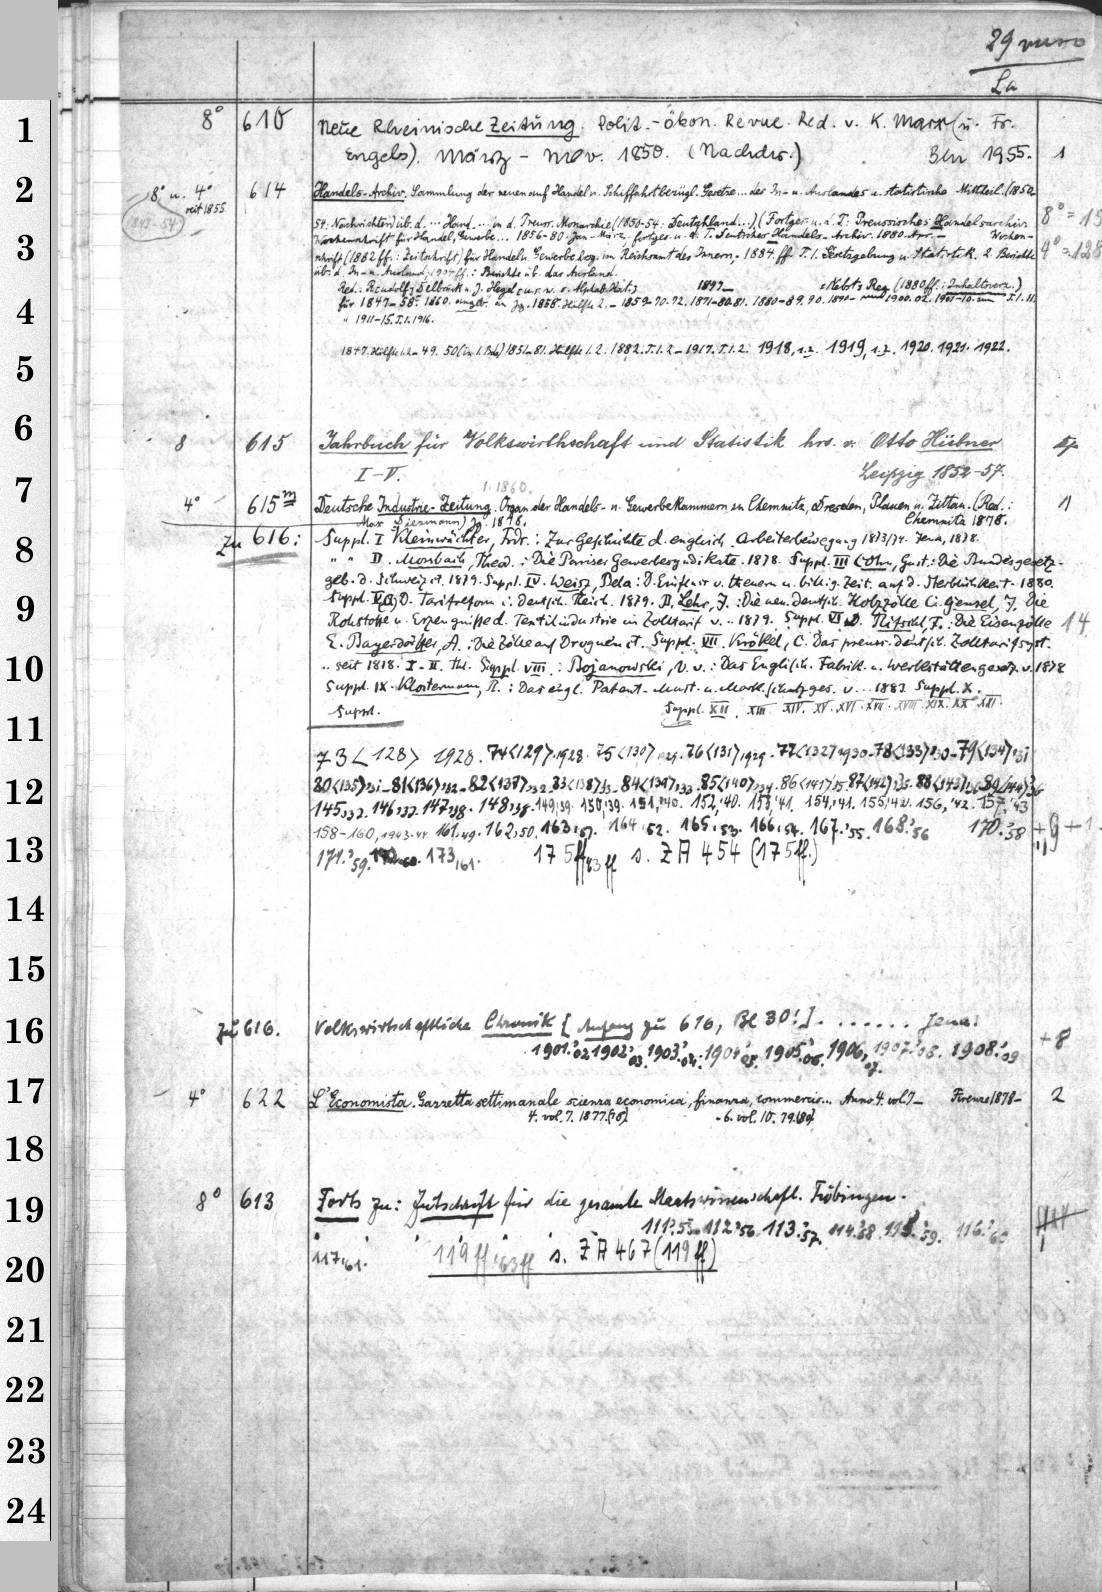 29 verso
La
1 8° 610 Neue Rheinische Zeitung. Polit.-Ökon. Revue. Red. v. K. Marx (u. Fr.
Engels). März - Nov. 1850. (Nachdr.) Bln 1955. 1
2 8° u. 4° seit 1855 614 Handels-Archiv. Sammlung der neuen auf Handel u. Schiffahrt bezügl. Gesetze... des In- u. Auslandes u. statistische Mittheil. (1850-
(1847-54) 54: Nachrichten) üb. d. ... Hand... in d. Preuss. Monarchie (1850-54: Deutschland...) (Fortges. u. d. T.: Preussisches Handelsarchiv. 8° = 15
3 Wochenschrift für Handel, Gewerbe... 1856-80. Jan-März, fortges. u. d. T. Deutsches Handels-Archiv. 1880. Apr. - Wochen-
schrift (1882 ff.: Zeitschrift) für Handel u. Gewerbe. hsg. im Reichsamt des Innern, - 1884 ff. T.1. Gesetzgebung u. Statistik. 2 Berichte 4° = 128
üb. d. In- u. Ausland, 1907 ff.: Berichte üb. das Ausland.
Red.: Rudolf Delbrück u. J. Hegel 1847- Nebst Reg (1880 ff.: Inhaltsverz.)
4 für 1847-58. 1860. 1858. Hälfte 2. - 1859-70. 72. 1871-80.81. 1880-89. 90. 1900. 02.
" 1911-15. T.1. 1916.
5 1847. Hälfte 1.2. - 49. 50 (in 1 Bde) 1851-81. Hälfte 1. 2. 1882. T.1.2. - 1917. T.1.2. 1918, 1.2. 1919, 1.2. 1920. 1921. 1922.
6 8 615 Jahrbuch für Volkswirthschaft und Statistik hrs. v. Otto Hübner
I-V. Leipzig 1852-57.
7 1. 1860.
4° 615m Deutsche Industrie-Zeitung. Organ der Handels- u. Gewerbekammern zu Chemnitz, Dresden, Plauen u. Zittau. (Red.: 1
Max Diezmann) Jg. 1878. Chemnitz 1878.
8 Zu 616: Suppl. I Kleinwächter, Frdr.: Zur Geschichte d. englisch. Arbeiterbewegung 1873/74. Jena, 1878.
" " II. Morsbach, Theod.: Die Pariser Gewerbesyndikate. 1878. Suppl. III Cohn, Gust.: Die Bundesgesetz-
geb. d. Schweiz 1879. Suppl. IV. Weisz, Bela: D. Einfluss v. theuern u. billig. Zeit. auf d. Sterblichkeit. 1880.
9 Suppl. V D. Tarifreform i. Deutsch. Reich. 1879. II, Lehr, J.: Die neu. deutsch. Holzzölle C. Gensel, J. Die
Rohstoffe u. Erzeugnisse d. Textilindustrie im Zolltarif v. .. 1879. Suppl. VI D. Nitschl, F.: Die Eisenzölle 14
E. Bayerdörffer, A.: Die Zölle auf Droguen Suppl. VII. Krökel, C. Das preuss. deutsch. Zolltarifsyst.
10 .. seit 1818. I-II. Thl. Suppl. VIII.: Bojanowski, V. v.: Das Englisch. Fabrik- u. Werkstättengesetz v. 1878
Suppl. IX. Klostermann, R.: Das engl. Patent- Must. u. Mark. schutzges. v. .. 1883. Suppl. X.
11 Suppl. Suppl. XII. XIII XIV. XV. XVI. XVII. XVIII XIX. XX XXI.
73 <128> 1928. 74 <129> 1928. 75 <130> 1929. 76 <131> 1929. 77 <132> 1930 - 78 <133> 1930 - 79 <134> 31
12 80 <135> 31 - 81 <136> 32 - 82 <137> 32. 83 <138> 33 - 84 <139> 33. 85 <140> 34. 86 <141> 35 87 <142> 35. 88 <143> 36 89 <144> 36
145,37. 146,37. 147,38. 148,38. 149,39. 150,39. 151,40. 152,40. 153,41. 154,41. 155,42. 156, '42. 157, '43
158-160, 1943-44. 161,49. 162,50. 163,51. 164,52. 165,53. 166,54. 167.'55. 168.'56 170.'58 +9 +1
13 171.'59. 173,61. 175ff,63ff s. ZA 454 (175ff.)
14
15
16 Zu 616. Volkswirtschaftliche Chronik [Anfang zu 616, Bl 30!]. . . . . . . Jena:
1901.'02 1902'03. 1903'04. 1904'05. 1905'06. 1906,'07. 1907'08. 1908.'09 +8
17 4° 622 L'Economista. Gazzetta settimanale scienza economica, finanza, commercio... Anno 4. vol. 7- Firenze 1878- 2
4. vol. 7. 1877.(78) - 6. vol. 10. 79.(80)
18
19 8° 613 Forts zu: Zeitschrift für die gesamte Staatswissenschaft. Tübingen.
111'55. 112'56. 113.'57. 114'58. 115'59. 116.'60
20 117,'61. 119ff,'63ff s. ZA 467 (119ff)
21
22
23
24